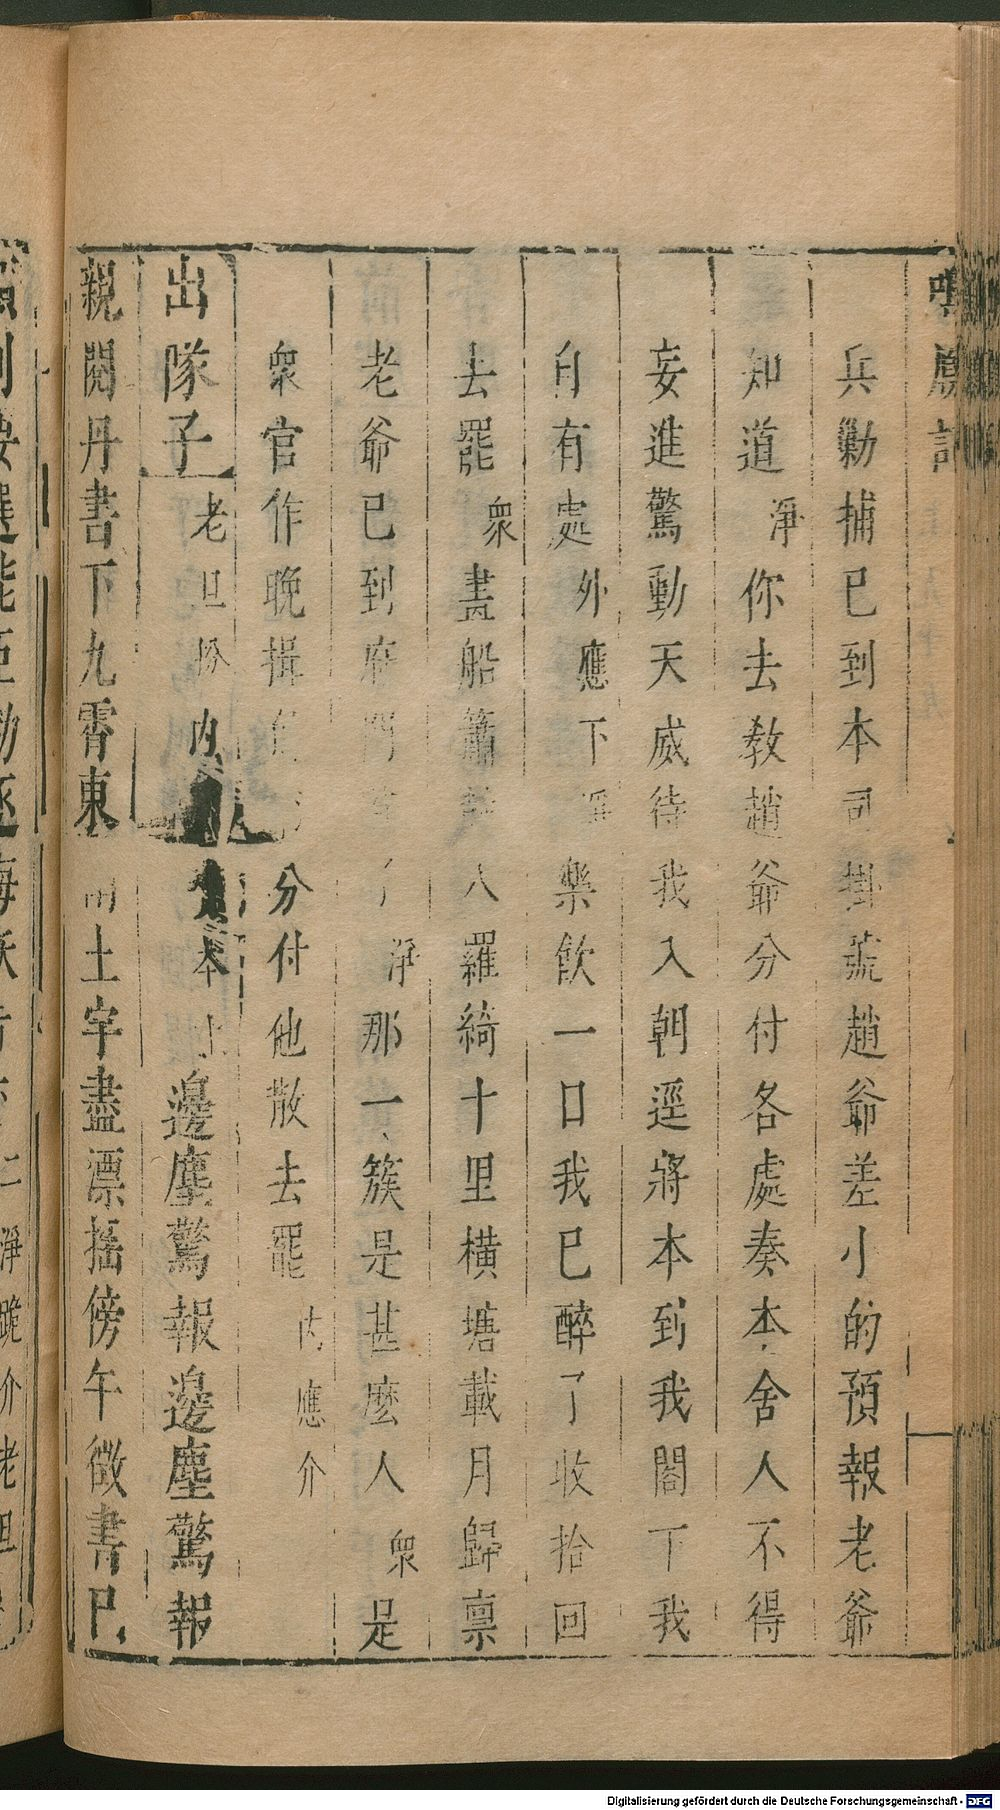 兵勦捕已到本司掛號趙爺差小的預報老爺
知道淨你去教趙爺分付各處奏本舍人不得
妄進驚動天威待我入朝逕將本到我閣下我
自有處外應下淨樂飲一口我已醉了收拾回
去罷衆畫船簫鼓八羅綺十里橫塘載月歸禀
老爺已到府門首了淨那一簇是甚麽人衆是
衆官作晚揖 分付他散去罷内應介
出隊子老旦扮内 本上邊塵驚報邊塵驚報
親闕丹書下九霄東 土宇盡漂搖傍午徵書已
Digitalisierung gefördert durch die Deutsche Forschungsgemeinschaft - DFG